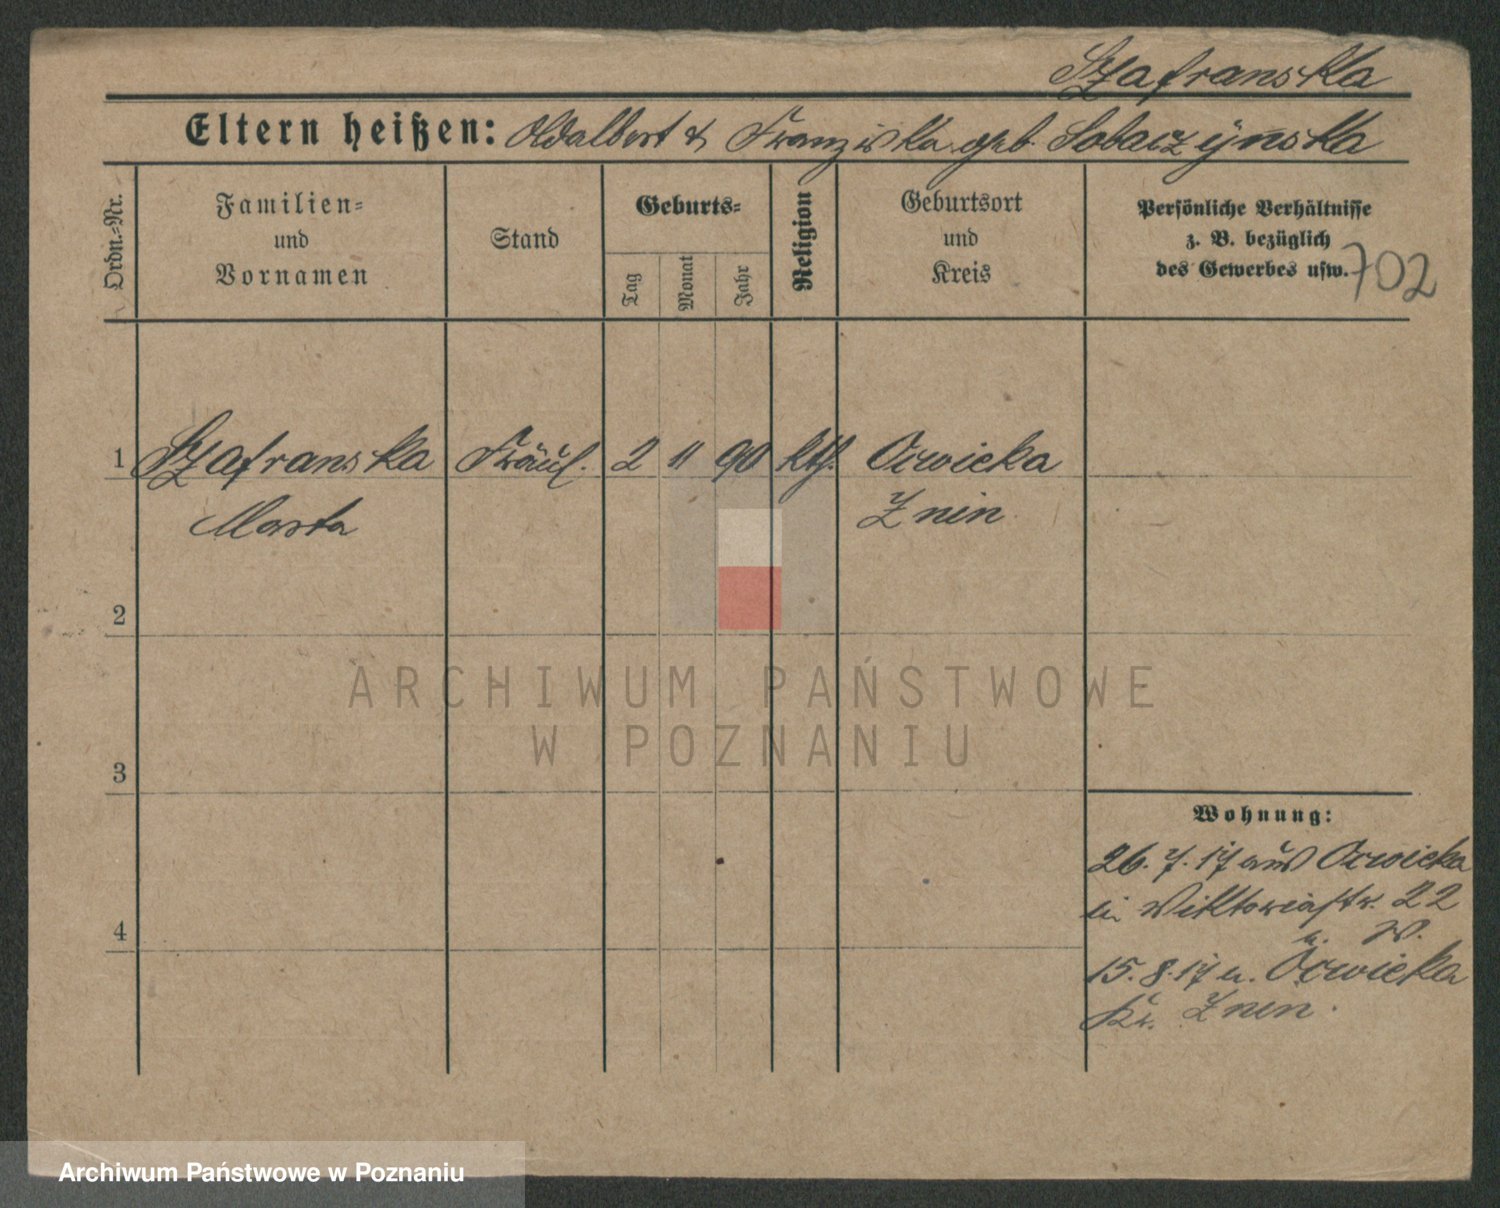 Szafranska
Eltern heißen: Adalbert & Franziska geb. Sobaczynska
Ordn.-Nr.
Familien-
und
Vornamen
Stand
Geburts-
Tag
Monat
Jahr
Religion
Geburtsort
und
Kreis
Persönliche Verhältnisse
z. B. bezüglich
des Gewerbes usw.
702
1 Szafranska Fräul. 2 11 90 kth. Ocwieka
Marta Znin
2
ARCHIWUM PAŃSTWOWE
W POZNANIU
3
Wohnung:
26. 7. 17 aus Ocwieka
in Viktoriastr. 22
4
15. 8. 17 n. Ocwieka
Kr. Znin.
Archiwum Państwowe w Poznaniu